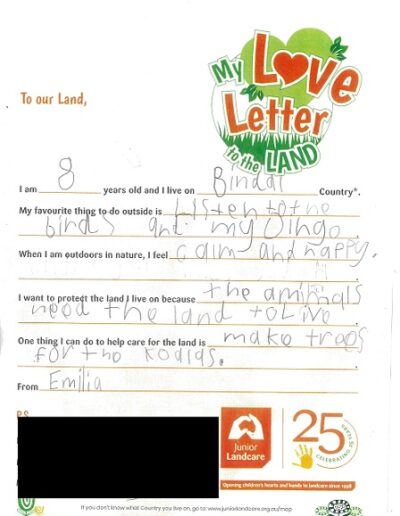 My Love
Letter
to the LAND
To our Land,
I am 8 years old and I live on Bindal Country*.
My favourite thing to do outside is Listen to the
birds and my Dingo.
When I am outdoors in nature, I feel calm and happy.
I want to protect the land I live on because the amimals
need the land to Live.
One thing I can do to help care for the land is make trees
for the koalas.
From Emilia
P.S.
Junior
Landcare
25 YEARS
CELEBRATING
Opening children's hearts and hands to landcare since 1998
If you don't know what Country you live on, go to: www.juniorlandcare.org.au/map